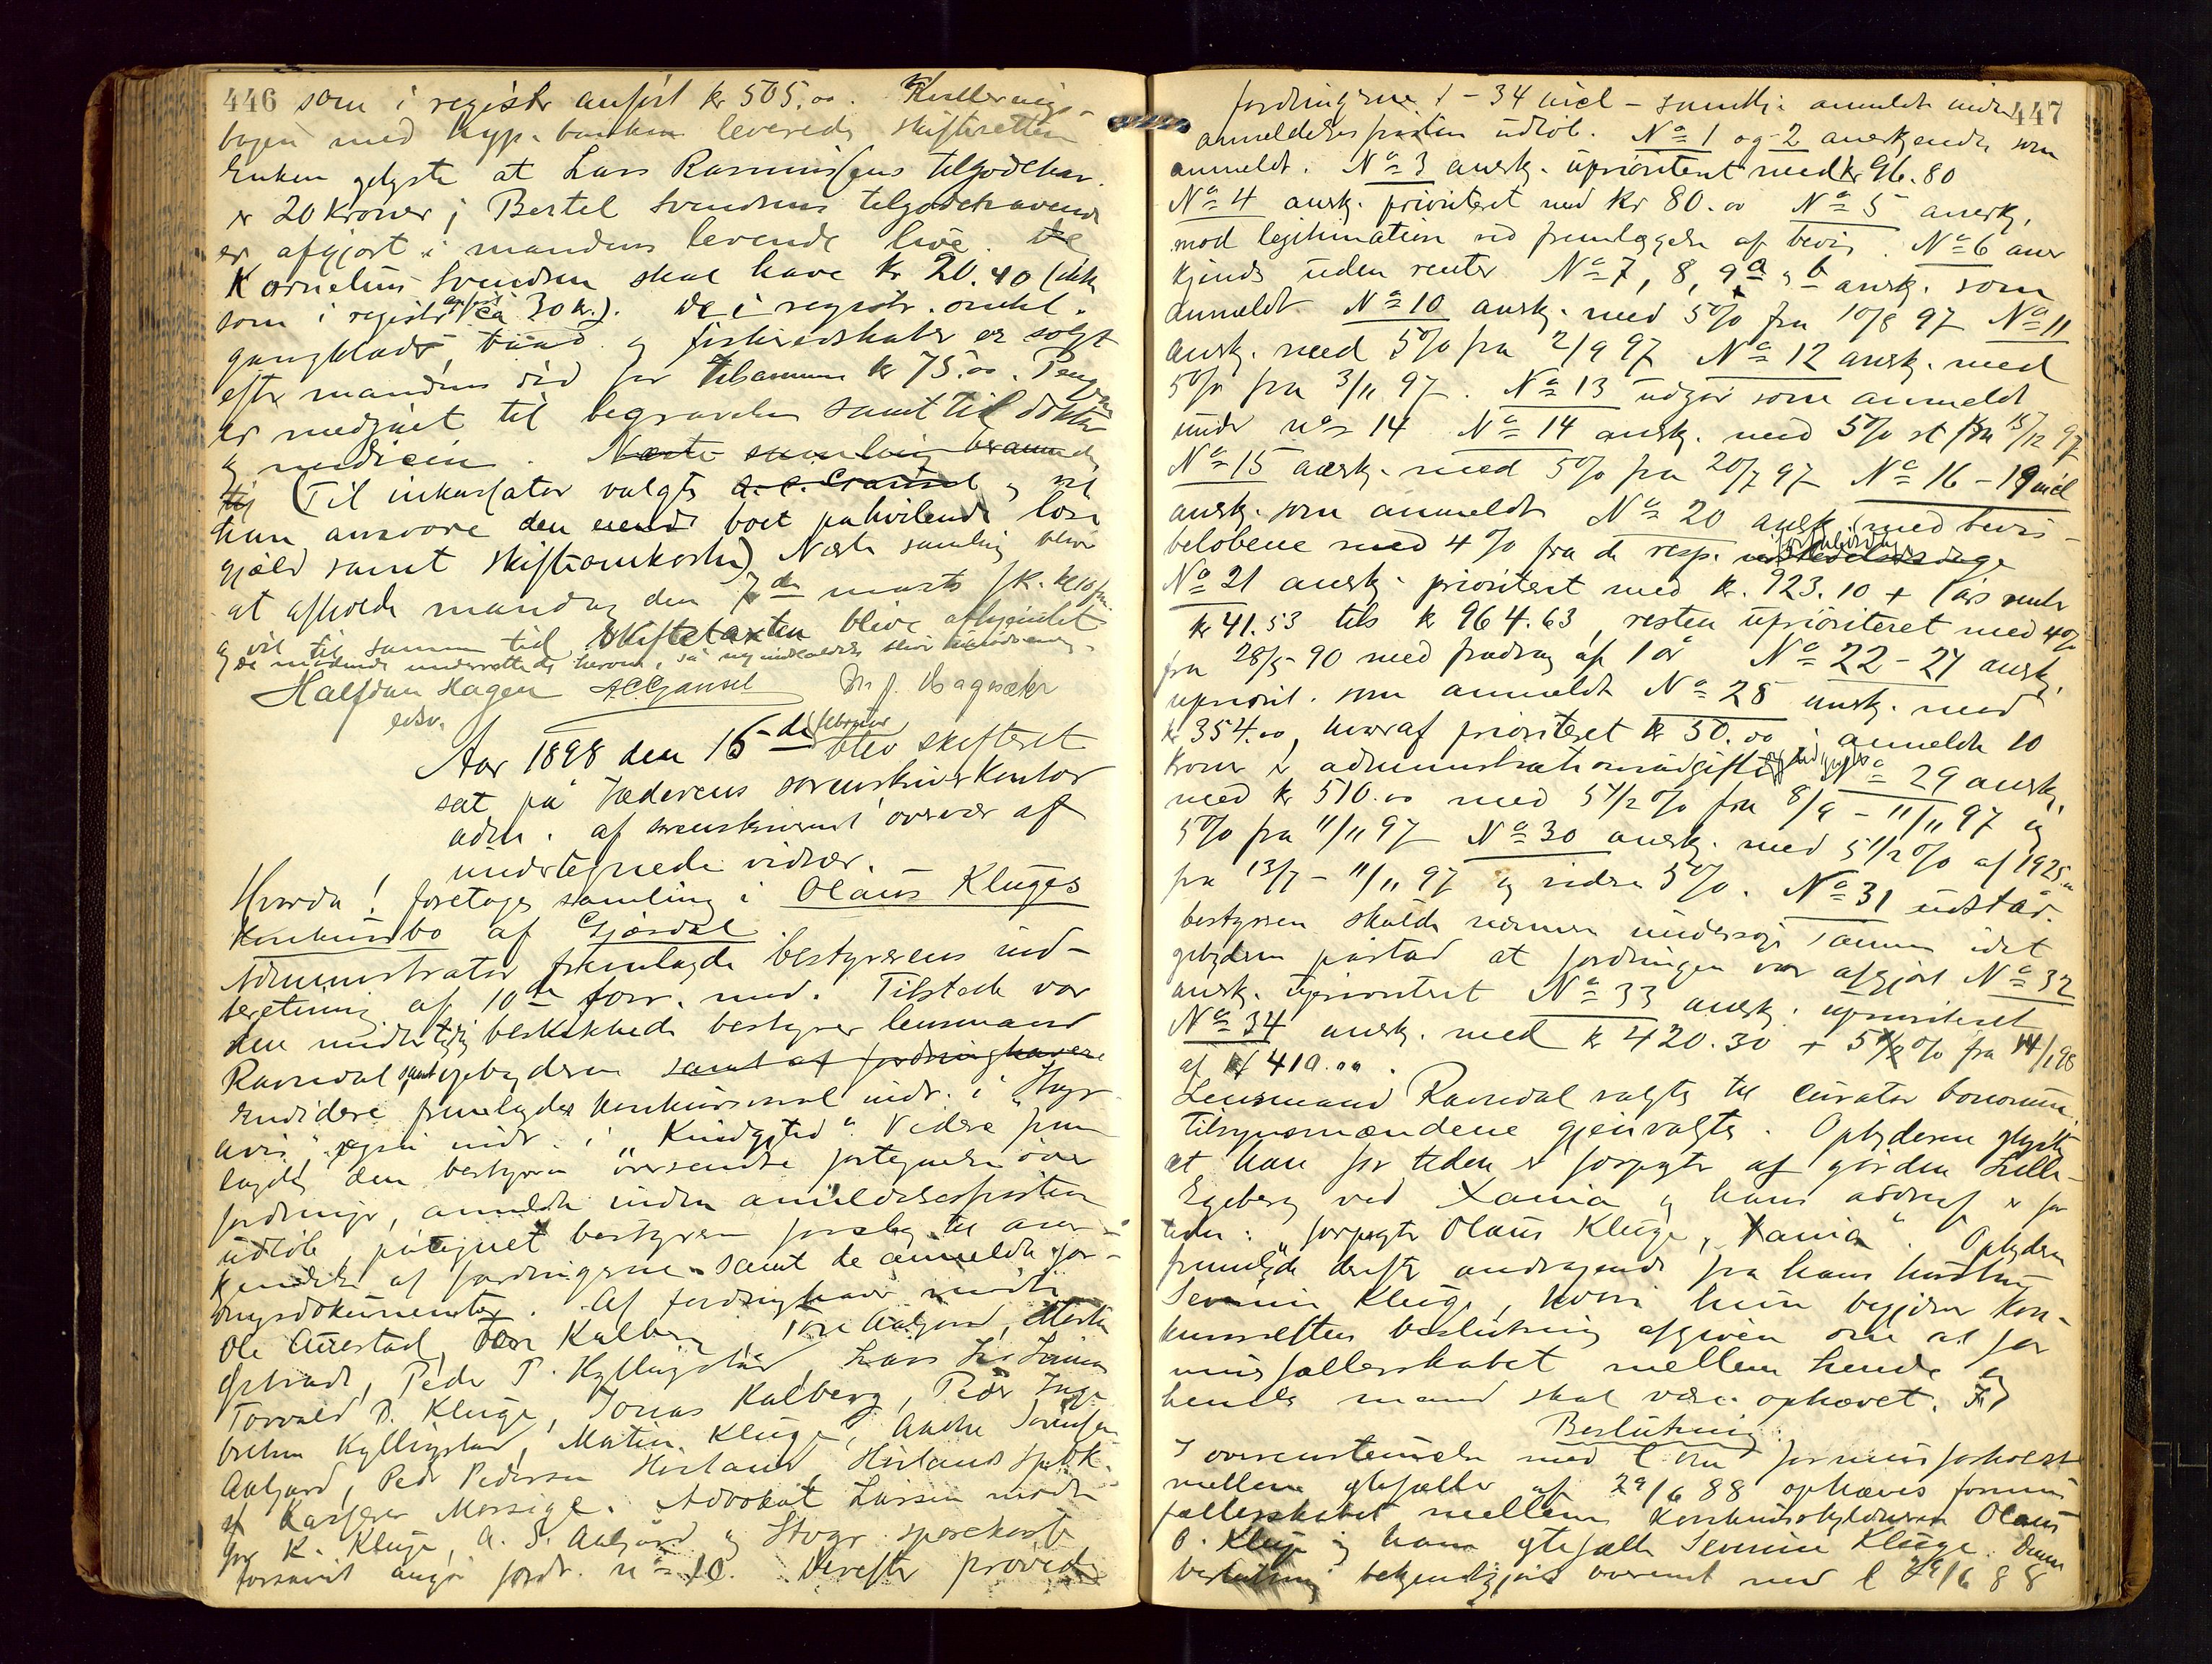 446 som i registr anført kr 505.00. Kvitterings-
bogen med hyp. banken leveredes skifteretten
Enken oplyste at Lars Rasmussens tilgodehav.
er 20 kroner; Bertel Svendsens tilgodehavende
er afgjort i mandens levende live. De
Kornelius Svendsen skal have kr 20.40 (ikke
som i registr anført ca 30 kr.). De i registr. omhl.
gangklæder, baad og fiskeredskaber er solgt
efter mandens død for tilsammen kr 75.00. Pengene
er medgaaet til begravelsen samt til doktor
og medicin. Næste samling berammedes
til (Til inkassator valgtes A. C. Gramsel og vil
han ansvare den boet påhvilende løse
gjæld samt skifteomkostn.) Næste samling bliver
at afholde mandag den 7de marts fk. kl 10 fm.
og vil til samme tid skiftetaxten blive afhjemlet
og de mødende underrettedes herom, så ny indkaldelse blir unødvendig.
Halfdan Hagen A C Gramsel
edsv.
Aar 1898 den 15de februar blev skifteret
sat på Jæderens sorenskriverkontor
adm. af sorenskriveren i overvær af
undertegnede vidner.
Hvorda! foretages samling i Olaus Kluges
konkursbo af Gjæsdal
Administrator fremlagde bestyrerens ind-
beretning af 10de forr. med. Tilstede var
den midlertidig beskikkede bestyrer lensmand
Ravndal samt opbyderen samt af fordringshavere
Endvidere fremlagdes konkursinnk. indr. i "Stvgr
avis", ogsaa indr. i "Kundgjtid". Videre frem
lagdes den bestyreren oversendte fortegnelse over
fordringer, anmeldte inden anmeldelsesfristens
udløb, påtegnet bestyrerens forslag til aner-
kjendelse af fordringerne samt de anmeldte for-
dringsdokumenter. Af fordringshaver mødte
Ole Auestad, Tore Kalberg, Tore Aalgaard,
Peder P. Kyllingstad, Lars
Torvald B. Kluge, Jonas Kalberg, Peder Inge
bretsen Kyllingstad, Martin Kluge, Andre Svendsen
Aalgaard, Peder Pedersen Høiland, Høilands spbk.
af Kasserer Mossige. Advokat Larsen mødte
for K. Kluge, A. S. Aalgaard og Stvgr sparekasse
forsaavidt angår fordr. no 10. Derefter prøvedes
447
fordringerne 1-34 incl - samtlige anmeldt inden
anmeldelsesfristens udløb. No 1 og 2 anerkjendes som
anmeldt. No 3 anerk. uprioriteret med kr 96.80
No 4 anerk. prioriteret med kr 80.00 No 5 anerk.
mod legitimation ved fremlæggelse af bevis. No 6 aner
kjendes uden renter No 7, 8, 9 a og b anerk. som
anmeldt No 10 anerk. med 5% fra 10/8 97 No 11
anerk. med 5% fra 2/9 97 No 12 anerk. med
5% fra 3/11 97. No 13 udgår som anmeldt
under no 14 No 14 anerk. med 5% st fra 15/12 97
No 15 anerk. med 5% fra 20/7 97 No 16-19 incl
anerk. som anmeldt No 20 anerk. med bevis-
beløbene med 4% fra de resp. forfaldsdage
No 21 anerk. prioriteret med kr. 923.10 + 1 års rente
kr 41.53 tils kr 964.63, resten uprioriteret med 4%
fra 28/5-90 med fradrag af 1 år No 22-27 anerk.
upriorit. som anmeldt No 28 anerk. med
kr 354.00, hvoraf prioriteret kr 50.00; anmeldte 10
kroner i administrationsudgifter No 29 anerk.
med kr 510.00 med 5 1/2% fra 8/9 - 11/11 97 og
5% fra 11/11 97 No 30 anerk. med 5 1/2% af 1925.00
fra 13/7 - 11/11 97 og videre 5%. No 31 udstår.
bestyreren skulde nærmere undersøge samme idet
opbyderen påstod at fordringen var afgjort No 32
anerk. uprioriteret No 33 anerk. uprioriteret
No 34 anerk. med kr 420.30 + 5% fra 14/1 98
af kr 410.00.
Lensmand Ravndal valgtes til curator bonorum.
Tilsynsmændene gjenvalgtes. Opbyderen oplyste
at han for tiden er forpagter af gården Lille-
Egeberg ved Xania og hans adresse er for
tiden: "forpagter Olaus Kluge, Xania". Opbyderen
fremlagde derefter andragende fra hans hustru
Severine Kluge, hvori hun begjærer kon-
kursrettens beslutning afgiven om at for
muesfællesskabet mellem hende og
hendes mand skal være ophævet.
Beslutning:
I overensstemmelse med l. om formuesforholdet
mellem ægtefæller af 29/6 88 ophæves formues
fællesskabet mellem konkursskyldneren Olaus
O. Kluge og hans ægtefælle Severine Kluge. Denne
beslutning bekjendtgjøres overensst. med l 29/6 88